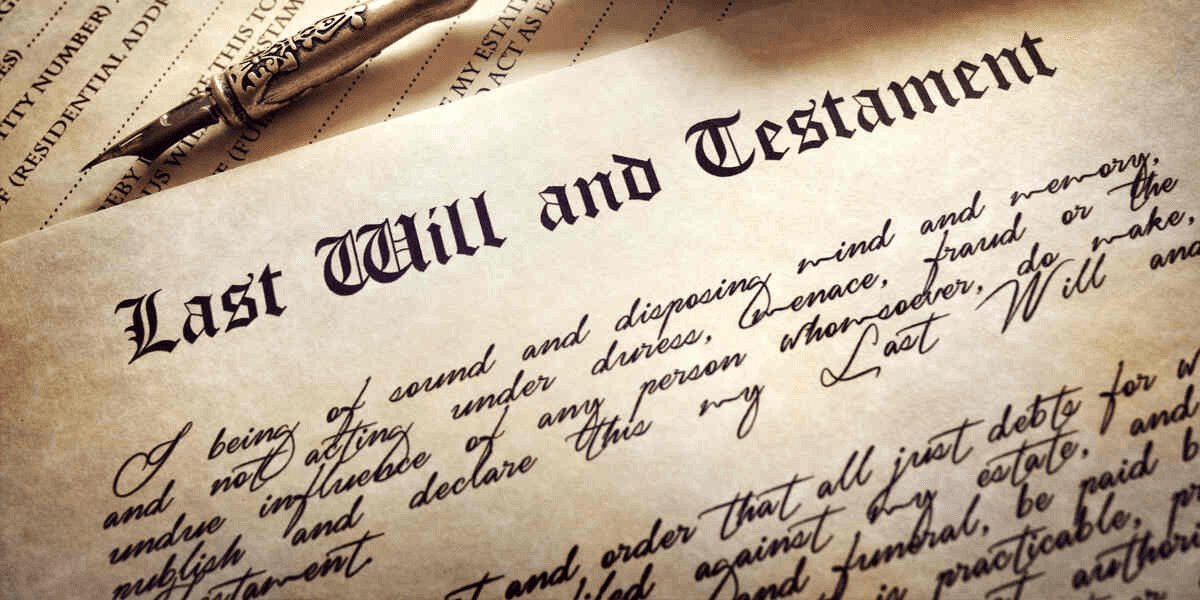 ES)
TITY NUMBER)
F (RESIDENTIAL ADDR
EBY
US WIL
RE THIS TO
STAM
F (FU
MY ESTATE
O ACT AS E
Last Will and Testament
I being of sound and disposing mind and memory,
and not acting under duress, menace, fraud or the
undue influence of any person whomsoever, do make,
publish and declare this my Last Will and
Testament
and order that all just debts for w
filed against my estate, and
and funeral, be paid b
is practicable, pr
authori